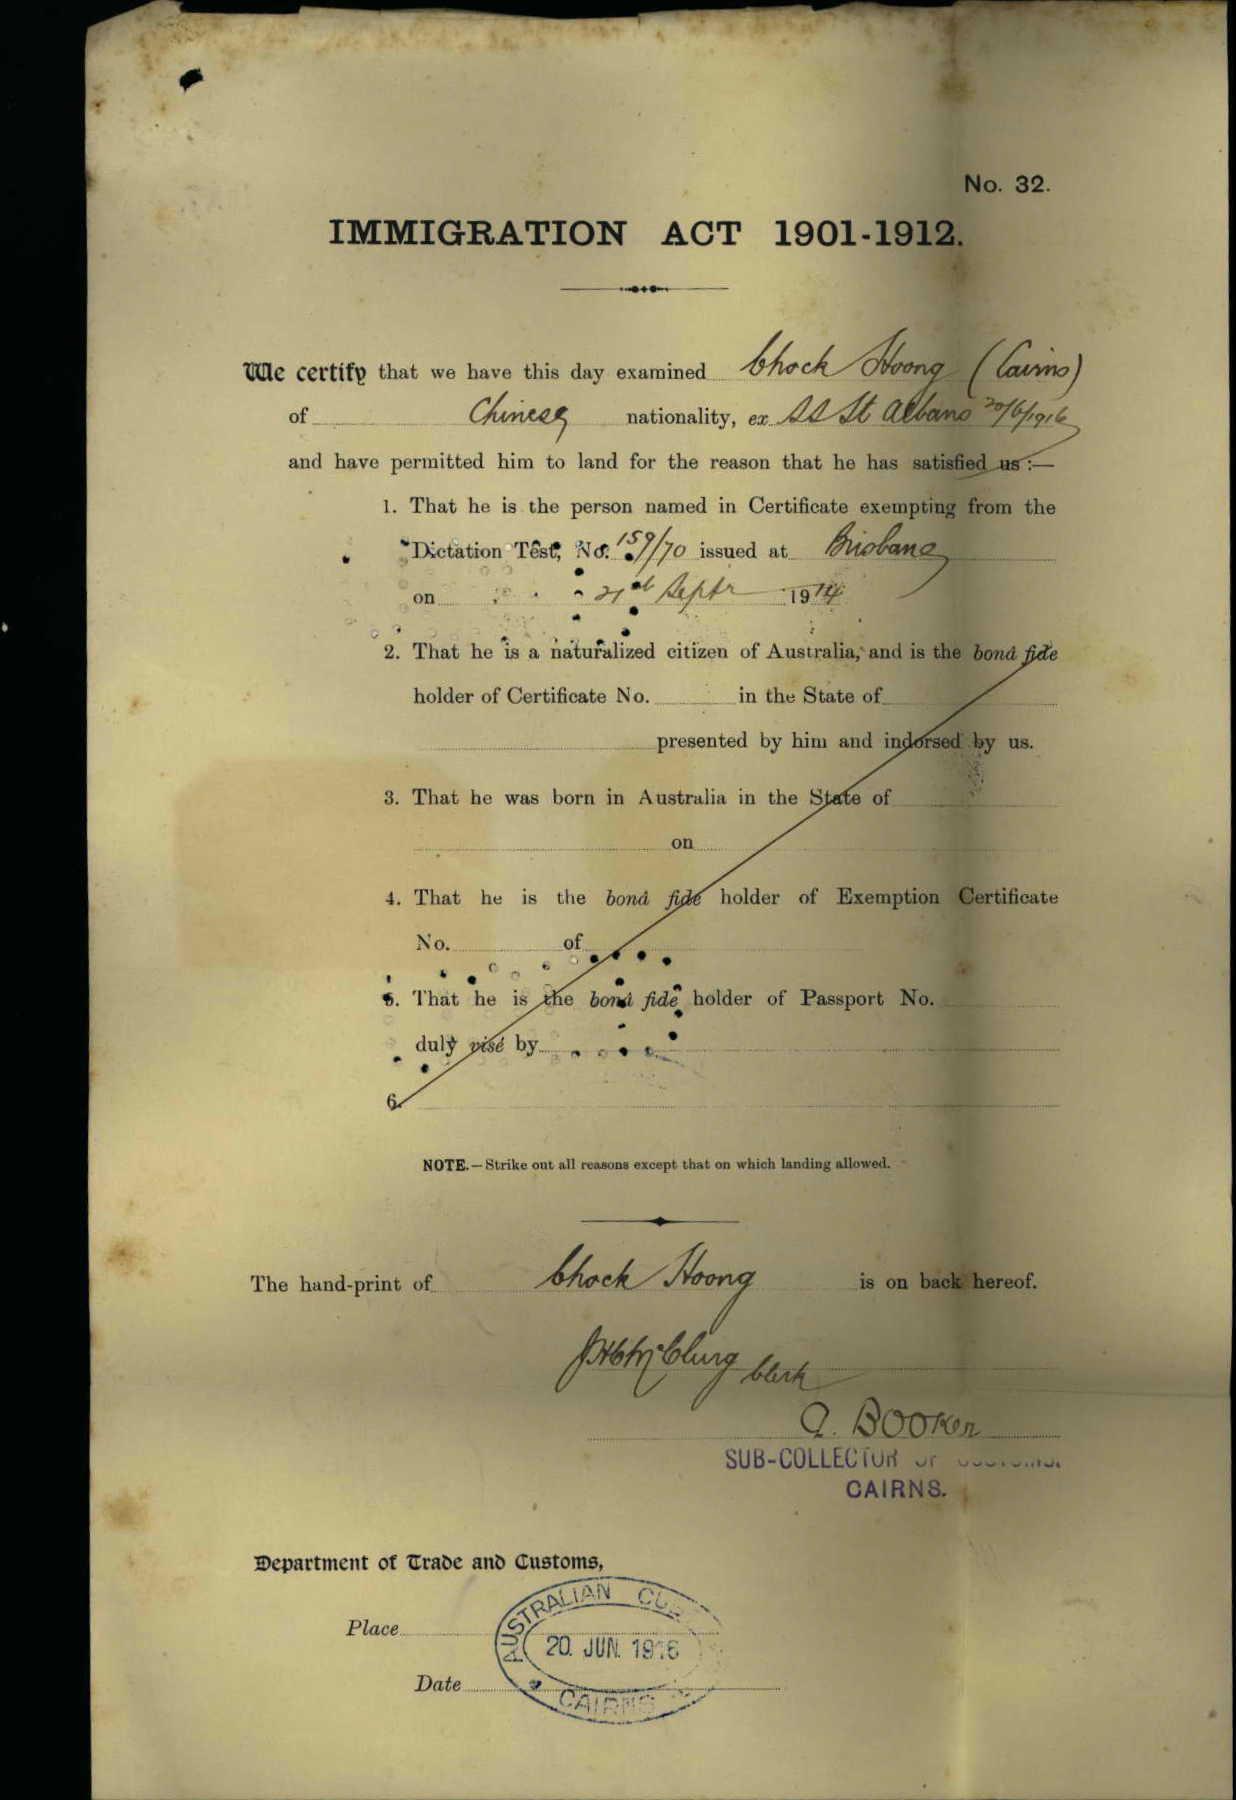 No. 32.
IMMIGRATION ACT 1901-1912.
We certify that we have this day examined Chock Hoong (Cairns)
of Chinese nationality, ex SS St Albans 20/6/1916
and have permitted him to land for the reason that he has satisfied us :—
1. That he is the person named in Certificate exempting from the
Dictation Test, No. 159/70 issued at Brisbane
on 21st Septr 1914
2. That he is a naturalized citizen of Australia, and is the bonâ fide
holder of Certificate No. in the State of
presented by him and indorsed by us.
3. That he was born in Australia in the State of
on
4. That he is the bonâ fide holder of Exemption Certificate
No. of
5. That he is the bonâ fide holder of Passport No.
duly visé by
6.
NOTE.—Strike out all reasons except that on which landing allowed.
The hand-print of Chock Hoong is on back hereof.
McClurg Clerk
A. BOOKER
SUB-COLLECTOR OF CUSTOMS.
CAIRNS.
Department of Trade and Customs,
AUSTRALIAN
Place
20. JUN. 1916
Date
CAIRNS